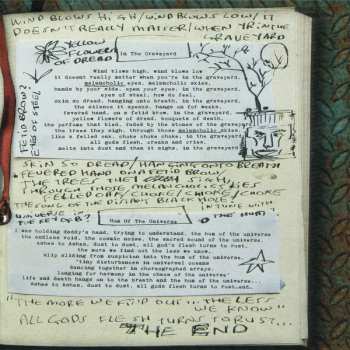 WIND BLOWS HIGH/WIND BLOWS LOW/IT
DOESN'T REALLY MATTER/WHEN I'M IN THE
GRAVEYARD
YELLOW
FLOWERS
OF DREAD
In The Graveyard
Wind blows high, wind blows low
it doesnt really matter when you're in the graveyard.
melancholic eyes, melancholic skies.
hands by your side, open your eyes, skin in the graveyard.
eyes of steel, how do feel.
skin so dread, hanging onto breath, in the graveyard.
the silence it spoons, hangs on for weeks.
fevered hand, on a fetid brow, in the graveyard.
yellow flowers of dread, bouquets of death.
the perfume that lingers by the stones of the graveyard.
the trees they sigh, through those melancholic skies
like a felled oak, choke choke choke, in the graveyard.
all gods flesh, creaks and cries.
melts into dust and then it sighs, in the graveyard.
FETID BROW?
EYES OF STEEL
SKIN SO DREAD/HANGING ONTO BREATH
FEVERED HAND ON A FETID BROW/
THE TREES THEY SIGH/
THROUGH THOSE MELANCHOLIC SKIES
FELLED OAK/CHOKE/CHOKE/CHOKE
THE CORE OF THE DISTANT BLACK HOLE
IN TUNE WITH
UNIVERSE
THE HUM
Hum Of The Universe
I was holding Gandy's hand, trying to understand, the hum of the universe
the endless void, the cosmic noise, the sacred sound of the universe.
ashes to ashes, dust to dust, all god's flesh turns to rust.
the more we find out the less we know.
slip sliding from suspicion into the hum of the universe.
tiny disturbances in universal oceans
dancing together in choreographed arrays.
longing for harmony in the chaos of the universe.
life and death hangs on to the breath and the hum of the universe.
ashes to ashes, dust to dust, all gods flesh turns to rust.
"THE MORE WE FIND OUT... THE LESS
WE KNOW"
ALL GODS FLESH TURNS TO RUST...
THE END